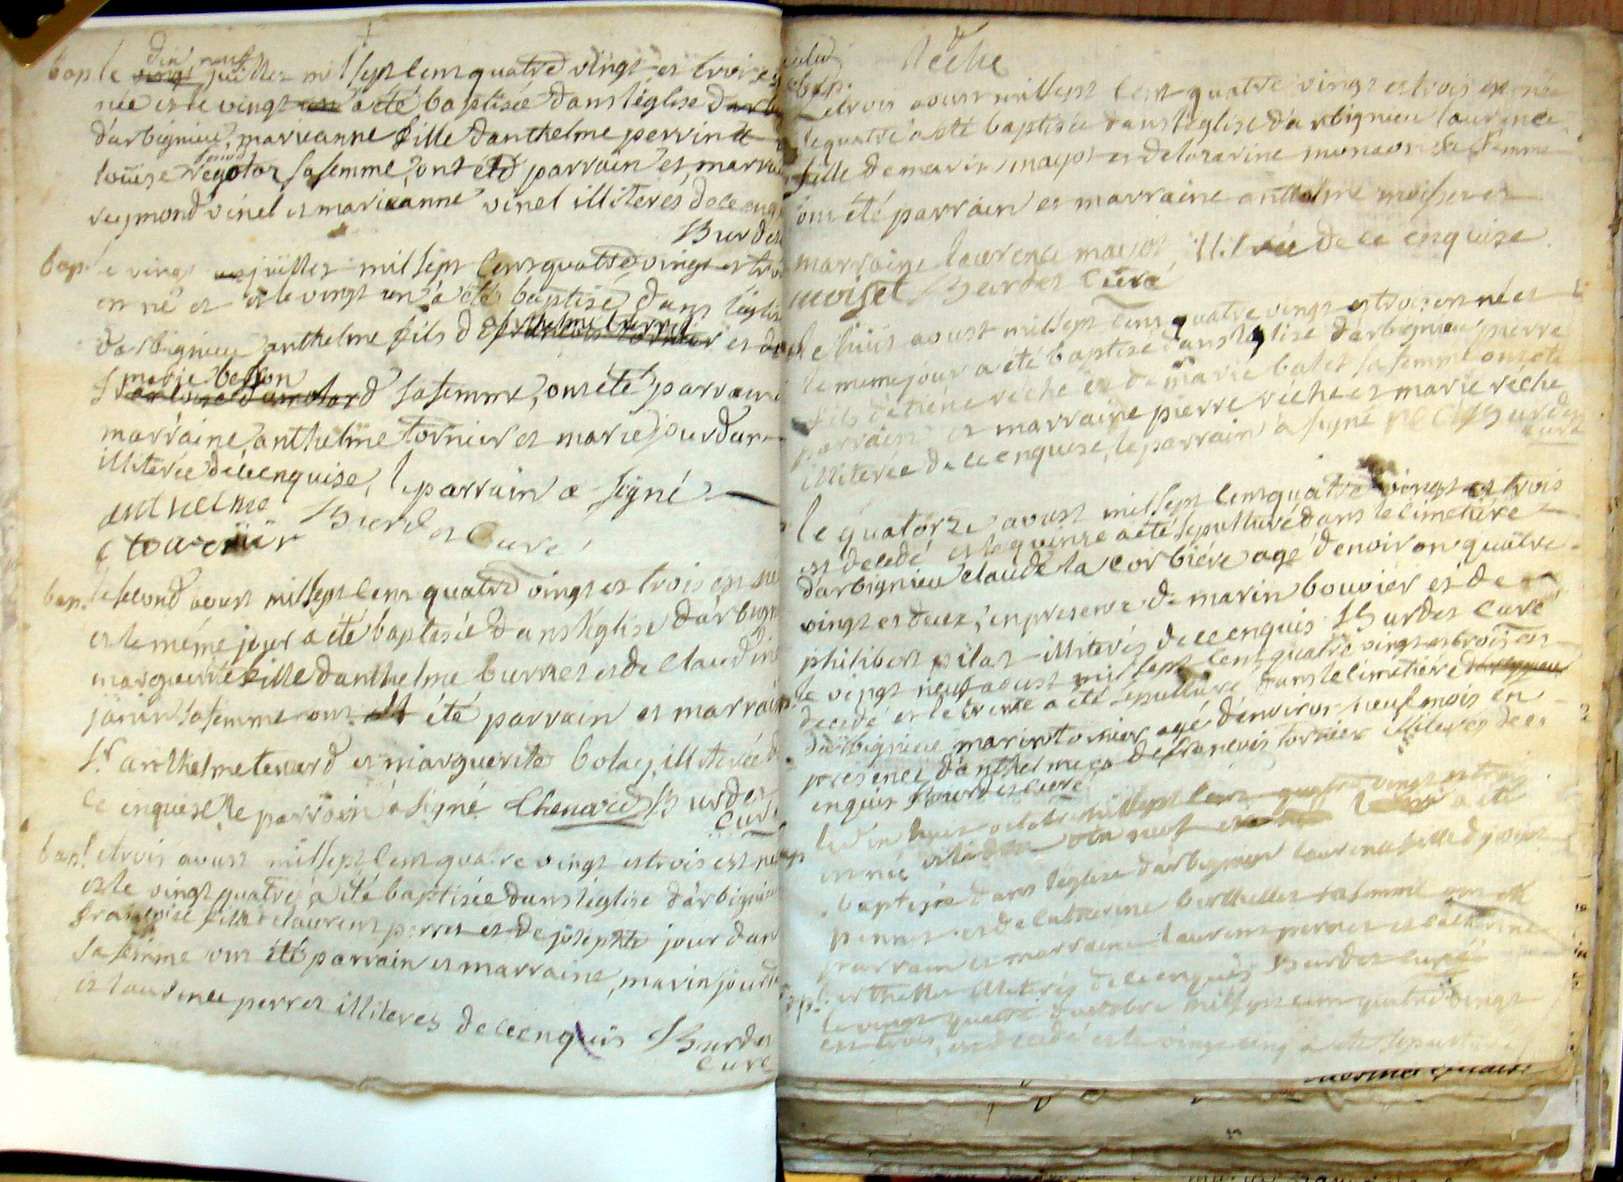 dix neuf
bap le juillet mil sept cent quatre vingt et trois est
née et le vingt a été baptisée dans léglise
d'arbignieu, marieanne fille d'anthelme perrin et
louise sa femme, ont eté parrain et marraine
reymond vinel et marieanne vinel illiterés de ce enquis
Burdet
bap le vingt juillet mil sept cent quatre vingt et trois
en né et le vingt un a été baptisé dans l'église
d'arbignieu anthelme fils d et de
marie besson
sa femme, ont été parrain
marraine anthelme tornier et marie jourdan
illiterée de ce enquise, le parrain a signé
anthelme Burdet Curé
bap. le second aoust mil sept cent quatre vingt et trois est née
et le même jour a été baptisée dans l'église d'arbignieu
marguerite fille d'anthelme burnet et de claudine
janin sa femme ont été parrain et marraine
Sr anthelme tenard et marguerite bolay, illiterée de
ce enquise, le parrain a signé Burdet
Curé
bap. le trois aoust mil sept cent quatre vingt et trois est née
et le vingt quatre a été baptisée dans léglise d'arbignieu
françoise fille de laurent perret et de josephte jourdan
sa femme ont été parrain et marraine, marin jourdan
et laurence perret illiteres de ce enquis Burdet
curé
réche
Le trois aoust mil sept cent quatre vingt et trois est née
le quatre a été baptisée dans l'église d'arbignieu laurence
fille de marin mayot et de sa femme
ont été parrain et marraine anthelme moiset et
marraine laurence mayot illiterée de ce enquise
moiset Burdet Curé
le huit aoust mil sept cent quatre vingt et trois est né et
le meme jour a eté baptisé dans leglise d'arbignieu pierre
fils d'etiene réche et de marie balet sa femme ont eté
parrain et marraine pierre réche et marie réche
illiterée de ce enquise, le parrain a signé Burdet
curé
le quatorze aoust mil sept cent quatre vingt et trois
est decedé et le quinze a été sepulturé dans le cimetiere
d'arbignieu claude la corbiere agé d'environ quatre
vingt et deux, en presence de marin bouvier et de
philibert pilat illiterés de ce enquis Burdet Curé
le vingt neuf aoust mil sept cent quatre vingt et trois est
decedé et le trente a été sepulturé dans le cimetiere
d'arbignieu marin tornier agé d'environ neuf mois en
presence d'anthelme et de françois tornier illiteres de ce
enquis Burdet curé
le dix huit octobre mil sept cent quatre vingt et trois
est née et le dix neuf a été
baptisée dans leglise d'arbignieu laurence fille
perret et de catherine berthellet sa femme ont été
parrain et marraine laurent perret et catherine
berthellet illiterés de ce enquis Burdet curé
le vingt quatre d'octobre mil sept cent quatre vingt
et trois, est decedé et le vingt cinq a été sepulturé